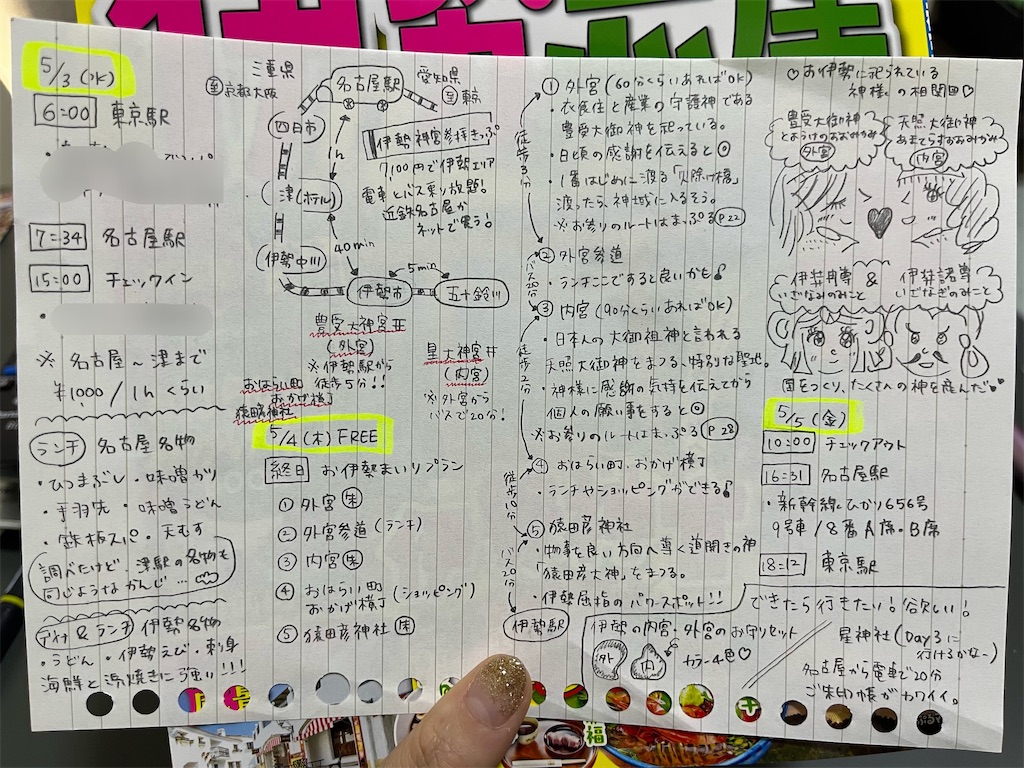 5/3(水)
6:00 東京駅
7:34 名古屋駅
15:00 チェックイン
※ 名古屋〜津まで
¥1000/1hくらい
ランチ 名古屋名物
・ひつまぶし・味噌カツ
・手羽先・味噌うどん
・鉄板スパ・天むす
調べたけど、津駅の名物も
同じようなかんじ…
ディナー&ランチ 伊勢名物
・うどん・伊勢えび・刺身
海鮮と浜焼きに強い!!!
三重県
至京都大阪
名古屋駅
愛知県
至東京
四日市
1h
津(ホテル)
40min
伊勢中川
伊勢市
5min
五十鈴川
伊勢神宮参拝きっぷ
7,100円で伊勢エリア
電車とバス乗り放題!
近鉄名古屋か
ネットで買う!
豊受大神宮
(外宮)
※伊勢駅から
徒歩5分!!
皇大神宮
(内宮)
※外宮から
バスで20分!
おはらい町
おかげ横丁
猿田彦神社
5/4(木) FREE
終日 お伊勢まいりプラン
① 外宮 朱
② 外宮参道(ランチ)
③ 内宮 朱
④ おはらい町
おかげ横丁
(ショッピング)
⑤ 猿田彦神社 朱
① 外宮(60分くらいあればOK)
・衣食住と産業の守護神である
豊受大御神を祀っている。
・日頃の感謝を伝えると◎
・1番はじめに渡る「火除け橋」
渡ったら、神域に入るそう。
※お参りのルートはまっぷる P22
徒歩3分
② 外宮参道
・ランチここであると良いかも♪
バス20分
③ 内宮(90分くらいあればOK)
・日本人の大御祖神と言われる
天照大御神をまつる、特別な聖地。
・神様に感謝の気持を伝えてから
個人の願い事をすると◎
※お参りのルートはまっぷる P28
徒歩2分
④ おはらい町、おかげ横丁
・ランチやショッピングができる♪
徒歩10分
⑤ 猿田彦神社
・物事を良い方向へ導く道開きの神
「猿田彦大神」をまつる。
・伊勢屈指のパワースポット!!
バス20分
伊勢駅
♡お伊勢に祀られている
神様の相関図♡
豊受大御神
とようけのおおみかみ
外宮
天照大御神
あまてらすおおみかみ
内宮
伊弉冉尊
いざなみのみこと
&
伊弉諾尊
いざなぎのみこと
国をつくり、たくさんの神を産んだ♥
5/5(金)
10:00 チェックアウト
16:31 名古屋駅
・新幹線ひかり656号
9号車/8番A席・B席
18:12 東京駅
できたら行きたい!欲しい!
伊勢の内宮・外宮のお守りセット
外
内
カラー4色♡
星神社(Day3に
行けるかなー)
名古屋から電車で20分
ご朱印帳がカワイイ。
福